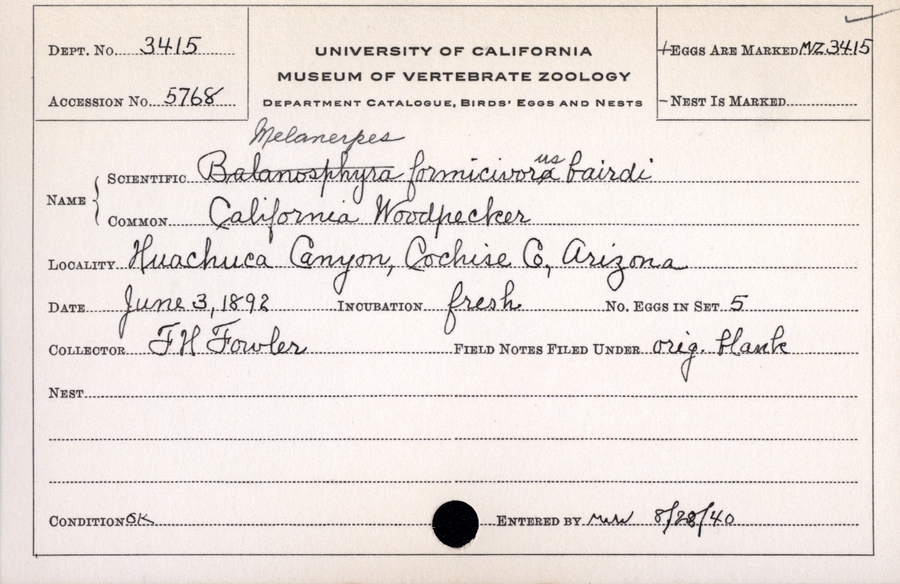 DEPT. No. 3415
ACCESSION No. 5768
UNIVERSITY OF CALIFORNIA
MUSEUM OF VERTEBRATE ZOOLOGY
DEPARTMENT CATALOGUE, BIRDS' EGGS AND NESTS
+EGGS ARE MARKED MZ 3415
-NEST IS MARKED
Melanerpes
NAME SCIENTIFIC Balanosphyra formicivora us bairdi
COMMON California Woodpecker
LOCALITY Huachuca Canyon, Cochise Co, Arizona
DATE June 3, 1892 INCUBATION fresh No. EGGS IN SET 5
COLLECTOR F H Fowler FIELD NOTES FILED UNDER orig. blank
NEST
CONDITION OK ENTERED BY 8/28/40